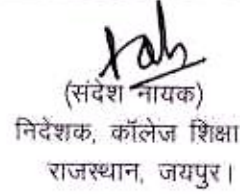 (संदेश नायक)
निदेशक, कॉलेज शिक्षा
राजस्थान, जयपुर।